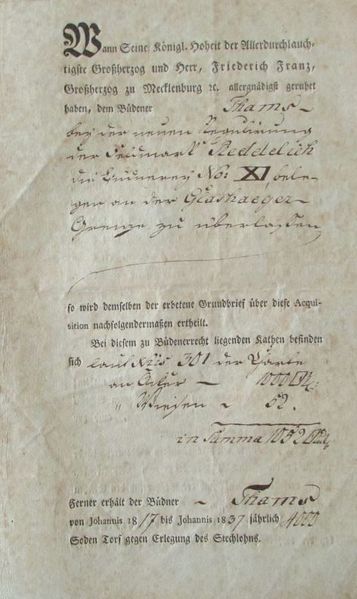 Wann Seine Königl. Hoheit der Allerdurchlauch-
tigste Großherzog und Herr, Friederich Franz,
Großherzog zu Mecklenburg ꝛc. allergnädigst geruhet
haben, dem Büdener Thams
bey der neuen Regulirung
der Feldmark Reddelich
die Büdnerey No: XI, bele-
gen an der Glashaeger
Grenze zu überlassen
so wird demselben der erbetene Grundbrief über diese Acqui-
sition nachfolgendermaßen ertheilt.
Bei diesem zu Büdenerrecht liegenden Kathen befinden
sich laut No 301 der Charte
an Acker — 1000
" Wiesen — 52.
in Summa 1052
Ferner erhält der Büdner — Thams
von Johannis 1817 bis Johannis 1837 jährlich 4000
Soden Torf gegen Erlegung des Stechlohns.